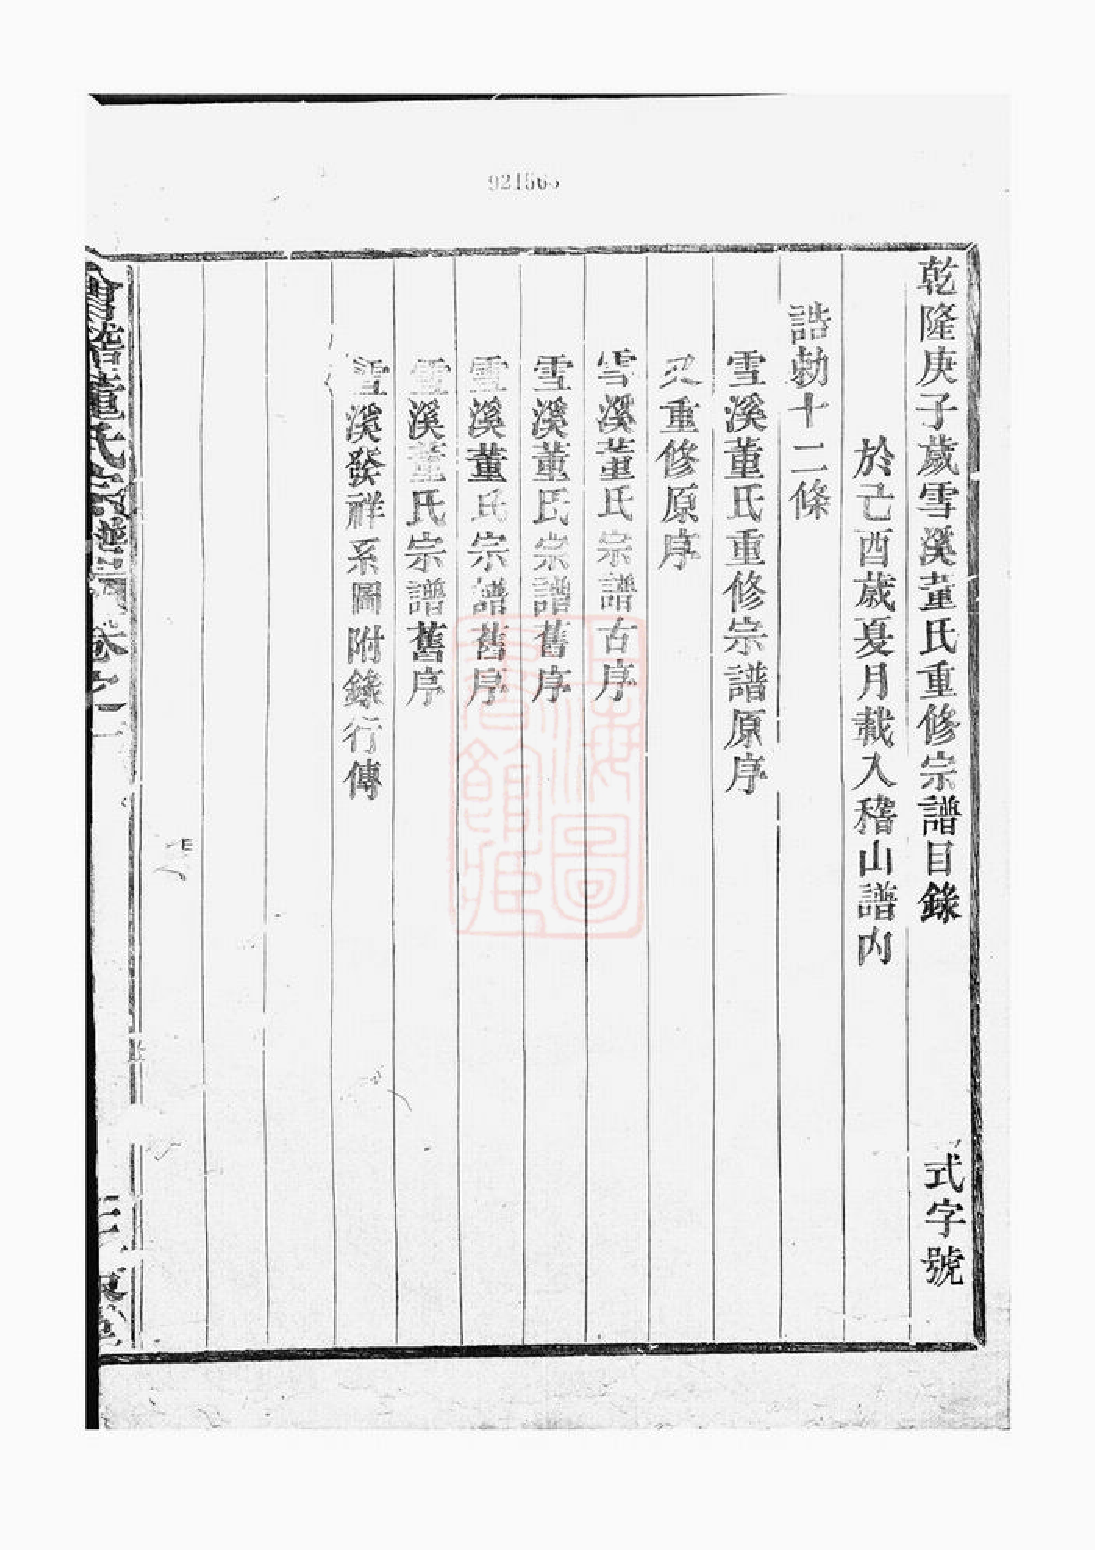 乾隆庚子歲雪溪董氏重修宗譜目錄　式字號
於己酉歲夏月載入稽山譜內
誥勅十二條
雪溪董氏重修宗譜原序
又重修原序
雪溪董氏宗譜古序
雪溪董氏宗譜舊序
雪溪董氏宗譜舊序
雪溪董氏宗譜舊序
雪溪發祥系圖附錄行傳
會稽董氏宗譜 卷之一
上海圖書館藏